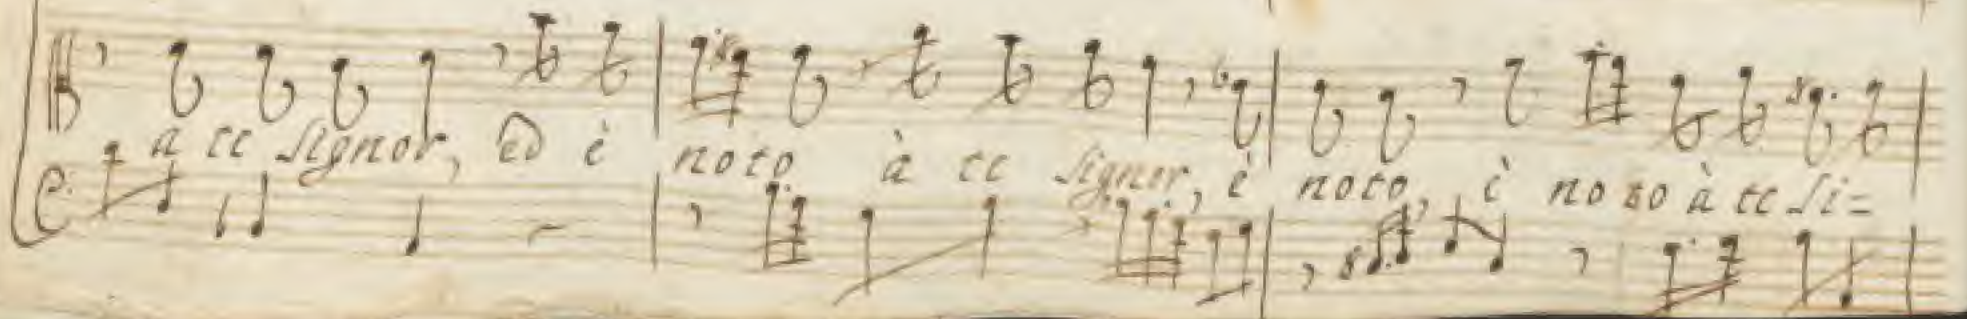 a te Signor, ed è noto à te Signor, è noto, è noto à te Si=